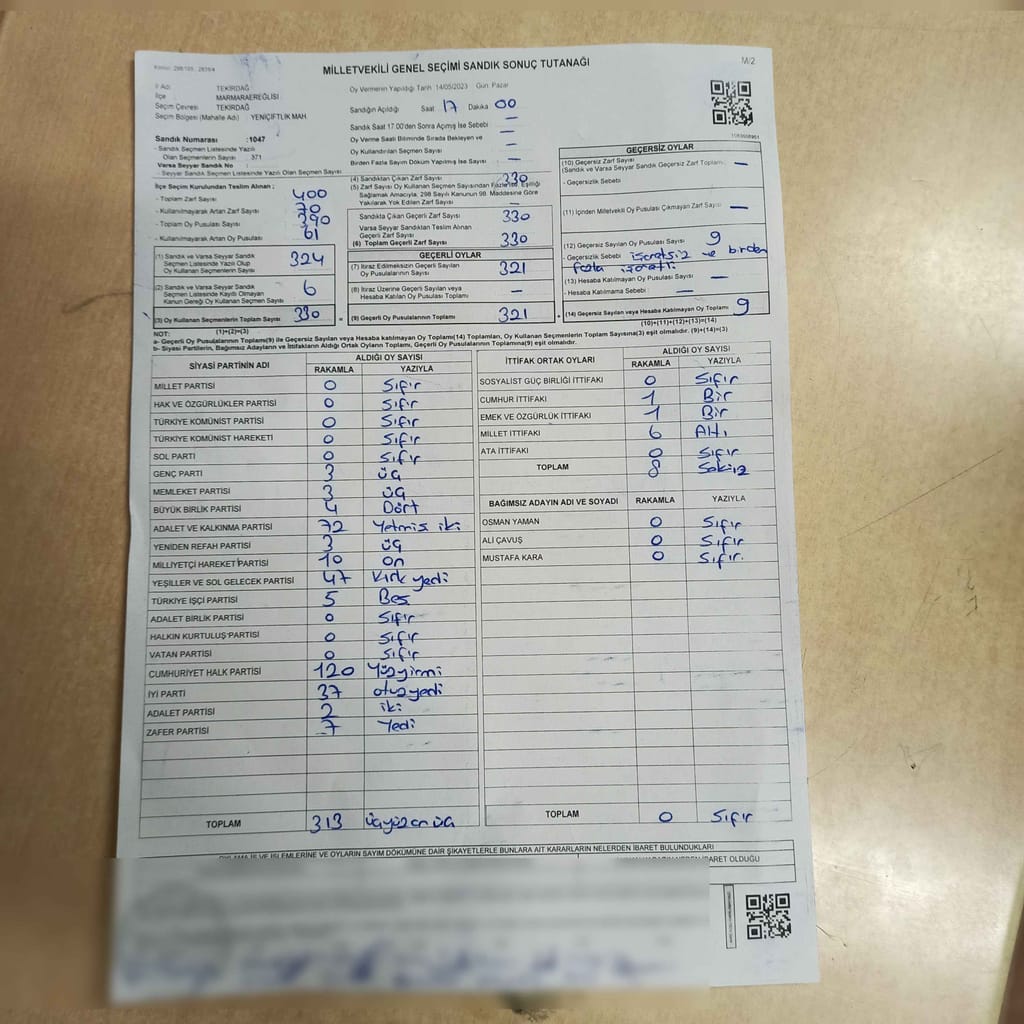 MİLLETVEKİLİ GENEL SEÇİMİ SANDIK SONUÇ TUTANAĞI
M/2
İl Adı TEKİRDAĞ
İlçe MARMARAEREĞLİSİ
Seçim Çevresi TEKİRDAĞ
Seçim Bölgesi (Mahalle Adı) YENİÇİFTLİK MAH.
Oy Vermenin Yapıldığı Tarih 14/05/2023 Gün: Pazar
Sandığın Açıldığı Saat 17 Dakika 00
Sandık Saat 17.00'den Sonra Açmış İse Sebebi —
Oy Verme Saati Bitiminde Sırada Bekleyen ve
Oy Kullandırılan Seçmen Sayısı —
Birden Fazla Sayım Döküm Yapılmış İse Sayısı —
Sandık Numarası :1047
- Sandık Seçmen Listesinde Yazılı
Olan Seçmenlerin Sayısı 371
Varsa Seyyar Sandık No :
- Seyyar Sandık Seçmen Listesinde Yazılı Olan Seçmen Sayısı
İlçe Seçim Kurulundan Teslim Alınan ;
- Toplam Zarf Sayısı 400
- Kullanılmayarak Artan Zarf Sayısı 70
- Toplam Oy Pusulası Sayısı 390
- Kullanılmayarak Artan Oy Pusulası 61
(1) Sandık ve Varsa Seyyar Sandık
Seçmen Listesinde Yazılı Olup
Oy Kullanan Seçmenlerin Sayısı 324
(2) Sandık ve Varsa Seyyar Sandık
Seçmen Listesinde Kayıtlı Olmayan
Kanun Gereği Oy Kullanan Seçmen Sayısı 6
(3) Oy Kullanan Seçmenlerin Toplam Sayısı 330
(4) Sandıktan Çıkan Zarf Sayısı 330
(5) Zarf Sayısı Oy Kullanan Seçmen Sayısından Fazla ise, Eşitliği
Sağlamak Amacıyla, 298 Sayılı Kanunun 98. Maddesine Göre
Yakılarak Yok Edilen Zarf Sayısı —
Sandıkta Çıkan Geçerli Zarf Sayısı 330
Varsa Seyyar Sandıktan Teslim Alınan
Geçerli Zarf Sayısı
(6) Toplam Geçerli Zarf Sayısı 330
GEÇERLİ OYLAR
(7) İtiraz Edilmeksizin Geçerli Sayılan
Oy Pusulalarının Sayısı 321
(8) İtiraz Üzerine Geçerli Sayılan veya
Hesaba Katılan Oy Pusulası Toplamı —
(9) Geçerli Oy Pusulalarının Toplamı 321
GEÇERSİZ OYLAR
(10) Geçersiz Zarf Sayısı
(Sandık ve Varsa Seyyar Sandık Geçersiz Zarf Toplamı) —
- Geçersizlik Sebebi
(11) İçinden Milletvekili Oy Pusulası Çıkmayan Zarf Sayısı —
(12) Geçersiz Sayılan Oy Pusulası Sayısı 9
- Geçersizlik Sebebi işaretsiz ve birden
fazla işaretli
(13) Hesaba Katılmayan Oy Pusulası Sayısı —
- Hesaba Katılmama Sebebi : —
(14) Geçersiz Sayılan veya Hesaba Katılmayan Oy Toplamı 9
NOT: (1)+(2)=(3)
(10)+(11)+(12)+(13)=(14)
a- Geçerli Oy Pusulalarının Toplamı(9) ile Geçersiz Sayılan veya Hesaba katılmayan Oy Toplamı(14) Toplamları, Oy Kullanan Seçmenlerin Toplam Sayısına(3) eşit olmalıdır. (9)+(14)=(3)
b- Siyasi Partilerin, Bağımsız Adayların ve İttifakların Aldığı Ortak Oyların Toplamı, Geçerli Oy Pusulalarının Toplamına(9) eşit olmalıdır.
SİYASİ PARTİNİN ADI ALDIĞI OY SAYISI
RAKAMLA YAZIYLA
MİLLET PARTİSİ 0 Sıfır
HAK VE ÖZGÜRLÜKLER PARTİSİ 0 Sıfır
TÜRKİYE KOMÜNİST PARTİSİ 0 Sıfır
TÜRKİYE KOMÜNİST HAREKETİ 0 Sıfır
SOL PARTİ 0 Sıfır
GENÇ PARTİ 3 üç
MEMLEKET PARTİSİ 3 üç
BÜYÜK BİRLİK PARTİSİ 4 Dört
ADALET VE KALKINMA PARTİSİ 72 Yetmiş iki
YENİDEN REFAH PARTİSİ 3 üç
MİLLİYETÇİ HAREKET PARTİSİ 10 on
YEŞİLLER VE SOL GELECEK PARTİSİ 47 Kırk yedi
TÜRKİYE İŞÇİ PARTİSİ 5 Beş
ADALET BİRLİK PARTİSİ 0 Sıfır
HALKIN KURTULUŞ PARTİSİ 0 Sıfır
VATAN PARTİSİ 0 Sıfır
CUMHURİYET HALK PARTİSİ 120 Yüzyirmi
İYİ PARTİ 37 otuzyedi
ADALET PARTİSİ 2 iki
ZAFER PARTİSİ 7 Yedi
TOPLAM 313 üçyüzonüç
İTTİFAK ORTAK OYLARI ALDIĞI OY SAYISI
RAKAMLA YAZIYLA
SOSYALİST GÜÇ BİRLİĞİ İTTİFAKI 0 Sıfır
CUMHUR İTTİFAKI 1 Bir
EMEK VE ÖZGÜRLÜK İTTİFAKI 1 Bir
MİLLET İTTİFAKI 6 Altı
ATA İTTİFAKI 0 Sıfır
TOPLAM 8 Sekiz
BAĞIMSIZ ADAYIN ADI VE SOYADI RAKAMLA YAZIYLA
OSMAN YAMAN 0 Sıfır
ALİ ÇAVUŞ 0 Sıfır
MUSTAFA KARA 0 Sıfır.
TOPLAM 0 Sıfır
OYLAMA İŞ VE İŞLEMLERİNE VE OYLARIN SAYIM DÖKÜMÜNE DAİR ŞİKAYETLERLE BUNLARA AİT KARARLARIN NELERDEN İBARET BULUNDUKLARI
İBARET OLDUĞU